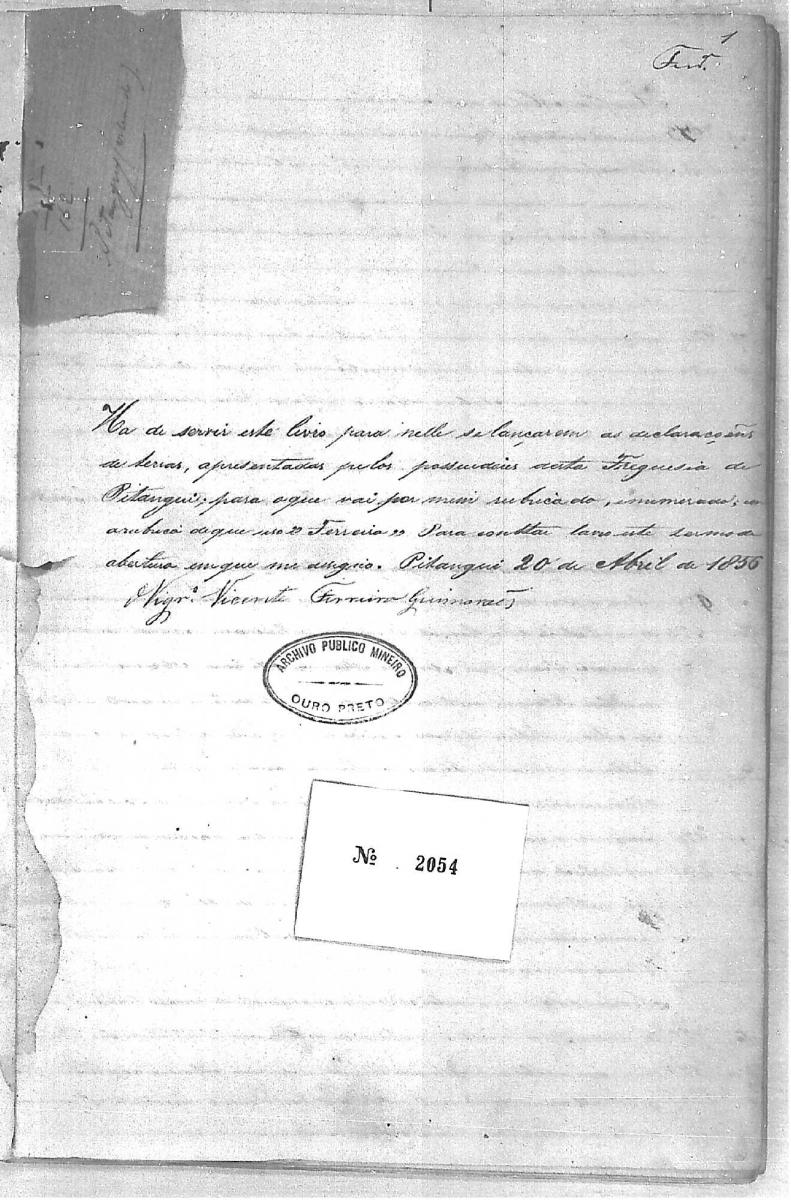 1
Ferr.ª
Ha de servir este livro para nelle se lançarem as declaraçoens
de terras, apresentadas pelos possuidores desta Freguesia de
Pitangui; para o que vai por mim rubricado, e numerado; com
a rubrica de que uso "Ferreira" Para constar lavro este termo de
abertura em que me assigno. Pitangui 20 de Abril de 1856
O Vigr.º Vicente Ferreira Guimaraẽs
ARCHIVO PUBLICO MINEIRO
OURO PRETO
Nº 2054